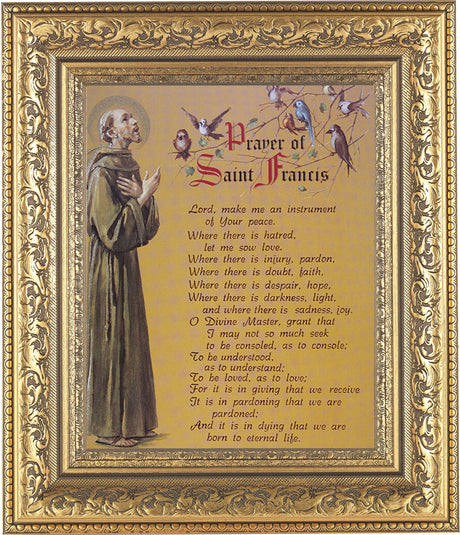 Prayer of
Saint Francis
Lord, make me an instrument
of Your peace.
Where there is hatred,
let me sow love.
Where there is injury, pardon,
Where there is doubt, faith,
Where there is despair, hope,
Where there is darkness, light,
and where there is sadness, joy.
O Divine Master, grant that
I may not so much seek
to be consoled, as to console;
To be understood,
as to understand;
To be loved, as to love;
For it is in giving that we receive
It is in pardoning that we are
pardoned;
And it is in dying that we are
born to eternal life.